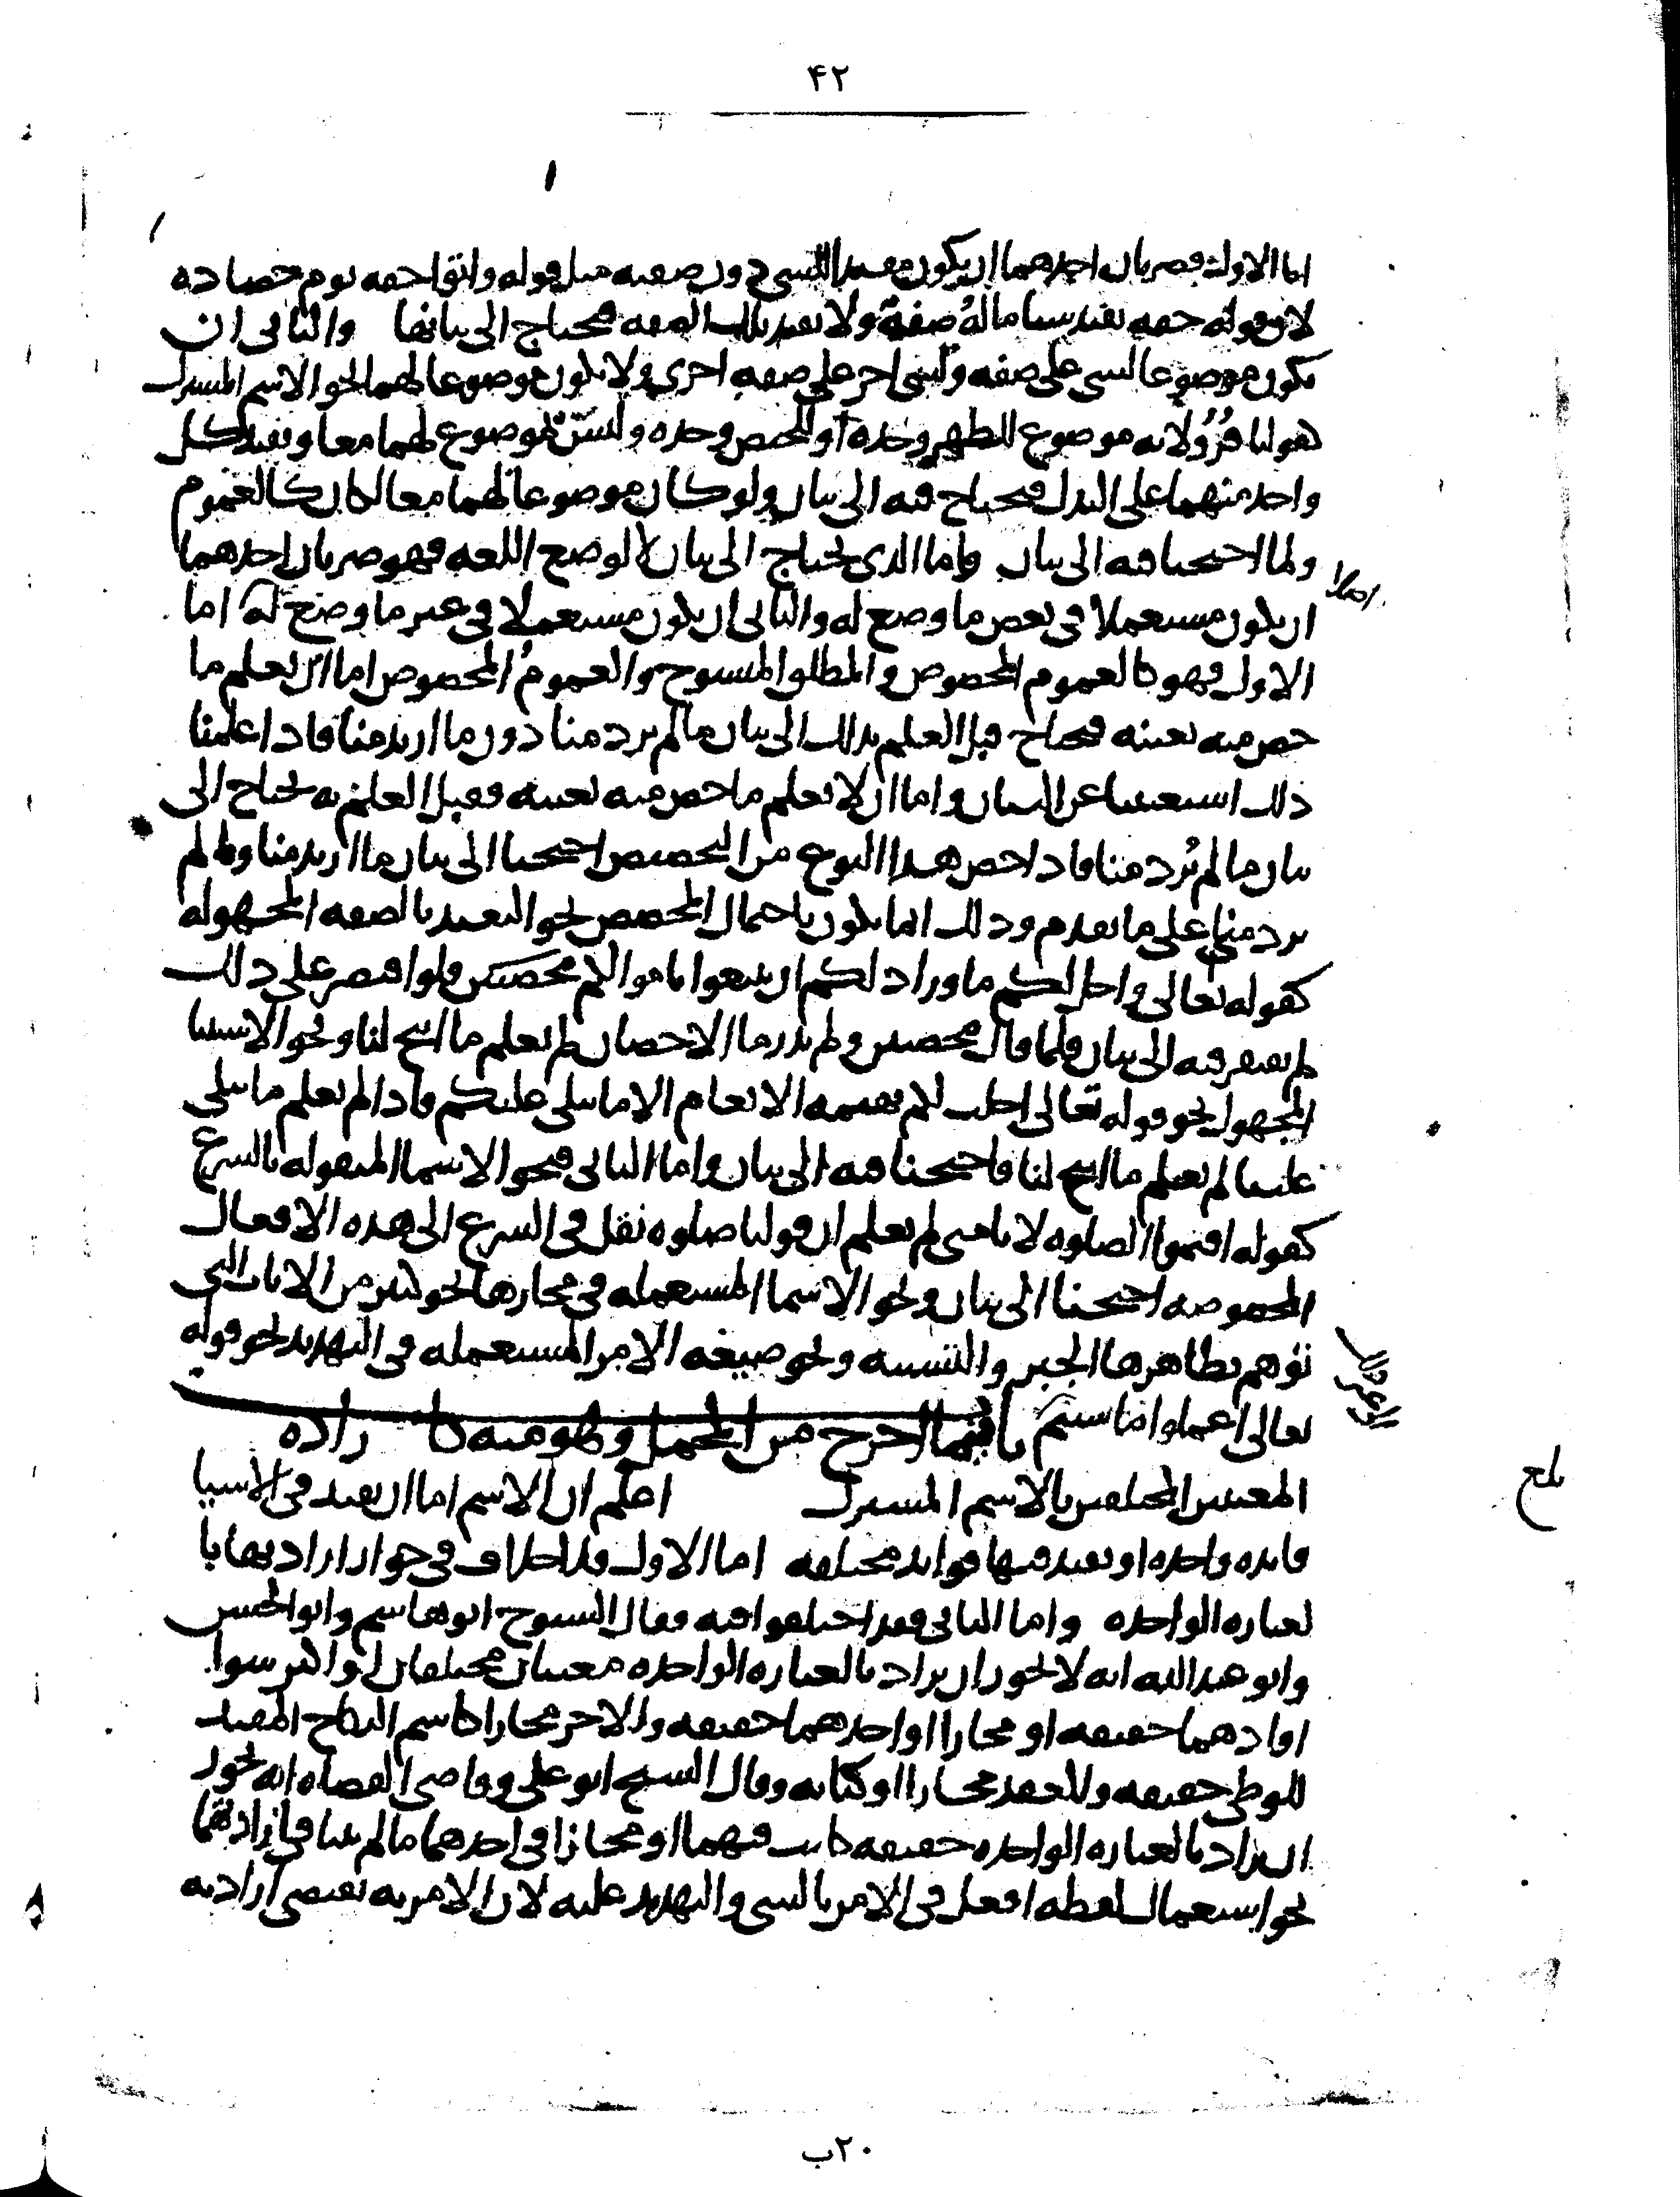 ۴۲
اما الاول فضربان احدهما ان يكون مفيدا لشىء دون صفته مثل قوله واتوا حقه يوم حصاده
لان قوله حقه يفيد شيئا ما له صفة ولا يفيد تلك الصفه فيحتاج الى بيانها والثانى ان
يكون موضوعا لشى على صفه ولشى اخر على صفه اخرى ولا يكون موضوعا لهما نحو الاسم المشترك
هو لنا قرؤ لانه موضوع للطهر وحده او للحيض وحده وليس بموضوع لهما معا ويفيد كل
واحد منهما على البدل فيحتاج فيه الى بيان ولو كان موضوعا لهما معا لكان كالعموم
ولما احتجنا فيه الى بيان واما الذى يحتاج الى بيان لا لوضع اللغه فهو ضربان احدهما
اصلا
ان يكون مستعملا فى بعض ما وضع له والثانى ان يكون مستعملا فى غير ما وضع له اما
الاول فهو كالعموم المخصوص والمطلق المنسوخ والعموم المخصوص اما ان يعلم ما
خص منه بعينه فيحتاج قبل العلم بذلك الى بيان ما لم يرد منا دون ما اريد منا فاذا علمنا
ذلك استغنينا عن البيان واما ان لا يعلم ما خص منه بعينه فقبل العلم به يحتاج الى
بيان ما لم يرد منا فاذا خص هذا النوع من التخصيص احتجنا الى بيان ما اريد منا وما لم
يرد منا على ما تقدم وذلك انما يكون باجمال المخصص نحو التقييد بالصفه المجهوله
كقوله تعالى واحل لكم ما ورا ذلكم ان تبتغوا باموالكم محصنين فلو اقتصر على ذلك
لم يفتقر فيه الى بيان فلما قال محصنين ولم ندر ما الاحصان لم نعلم ما ابيح لنا ونحو الاستثنا
المجهول نحو قوله تعالى احلت لكم بهيمه الانعام الا ما يتلى عليكم فاذا لم نعلم ما يتلى
علينا لم نعلم ما ابيح لنا فاحتجنا فيه الى بيان واما الثانى فنحو الاسما المنقوله بالشرع
كقوله اقيموا الصلوه لانا متى لم نعلم ان قولنا صلوه نقل فى الشرع الى هذه الافعال
المخصوصه احتجنا الى بيان ونحو الاسما المستعمله فى مجازها نحو كثير من الايات التى
توهم بظاهرها الجبر والتشبيه ونحو صيغه الامر المستعمله فى التهديد نحو قوله
تعالى اعملوا ما شئتم باب فيما اخرج من المجمل وهو منه كاراده
المعنيين المختلفين بالاسم المشترك اعلم ان الاسم اما ان يفيد فى الاشيا
فايده واحده او يفيد فيها فوايد مختلفه اما الاول فلا خلاف فى جواز ارادتها با
لعباره الواحده واما الثانى فقد اختلفوا فيه فقال الشيوخ ابو هاشم وابو الحسن
وابو عبد الله انه لا يجوز ان يراد بالعباره الواحده معنيان مختلفان او اكثر سوا
افادهما حقيقه او مجازا او احدهما حقيقه والاخر مجازا كاسم النكاح المفيد
للوطى حقيقه وللعقد مجازا او كنايه وقال الشيخ ابو على وقاضى القضاه انه يجوز
ان يراد بالعباره الواحده حقيقه كانت فيهما او مجازا فى احدهما ما لم يتنافيا
نحو استعمال لفظه افعل فى الامر بالشى والتهديد عليه لان الامر به يقتضى اراد به
٢٠ب